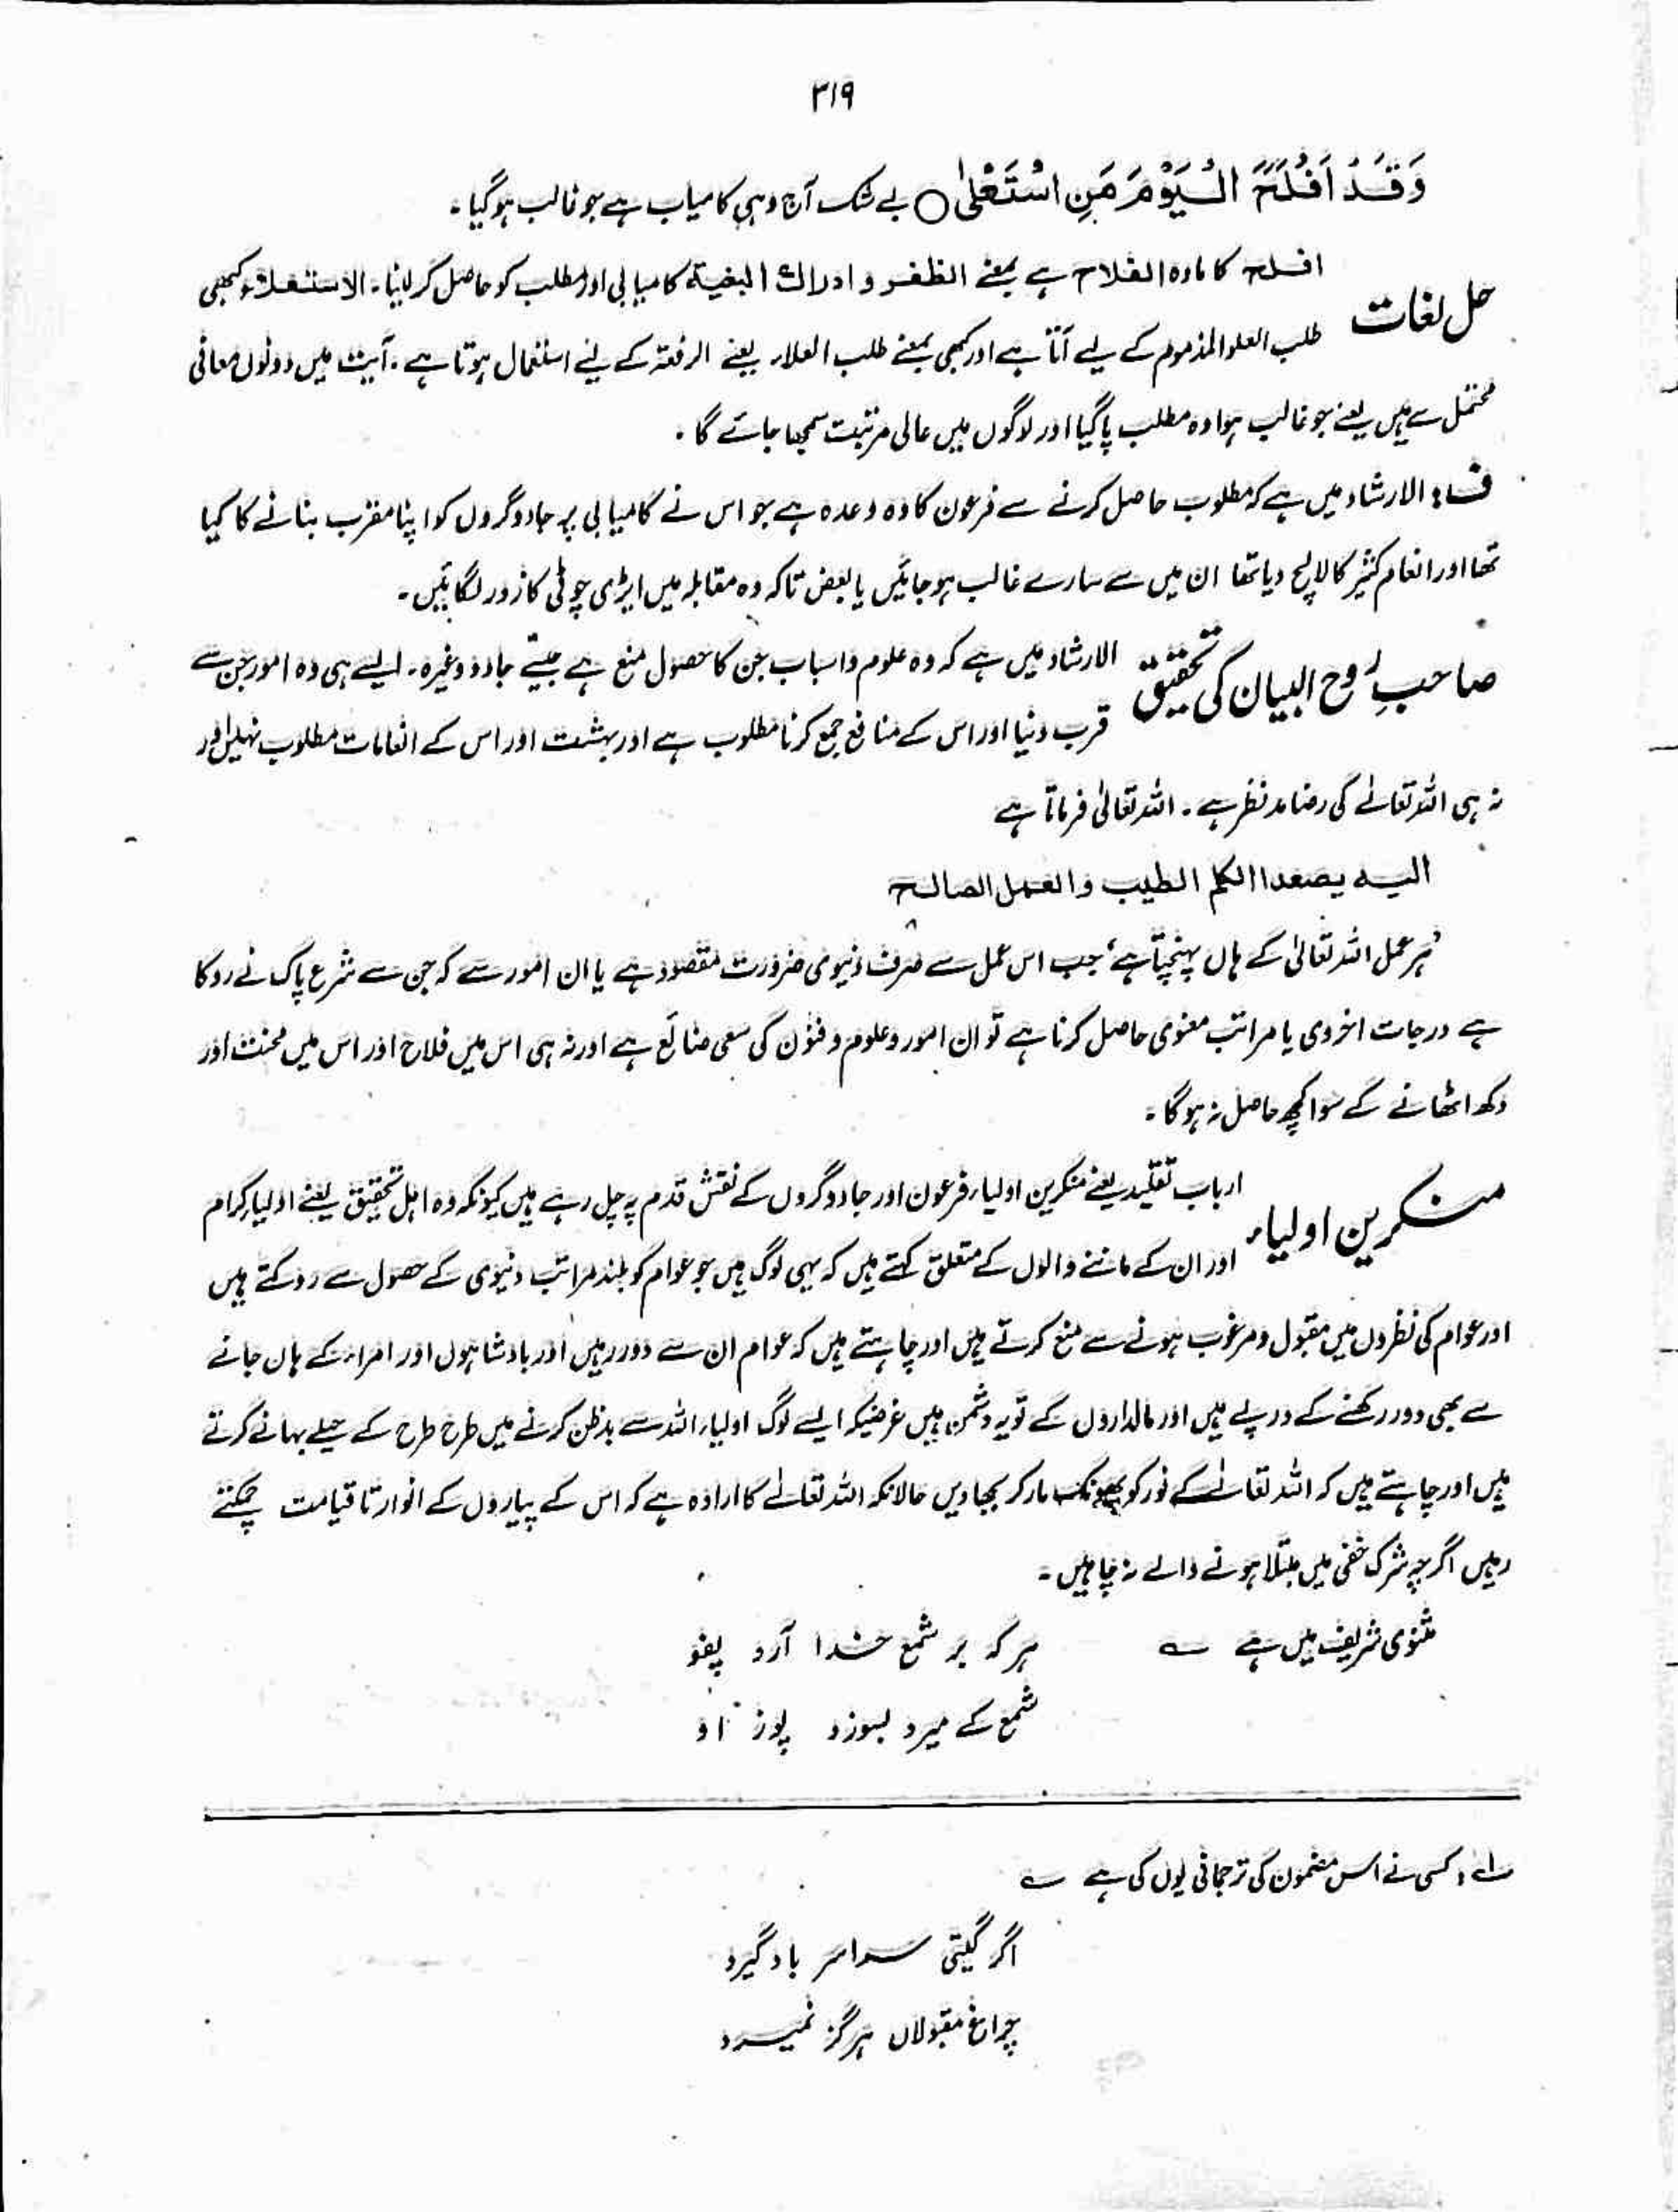 ٣١٩
وَقَدْ اَفْلَحَ الْيَوْمَ مَنِ اسْتَعْلٰى ○ بے شک آج وہی کامیاب ہے جو غالب ہوگیا ۔
حل لغات
افلح کا مادہ الفلاح ہے بمعنے الظفر و ادراك البغية کامیابی اور مطلب کو حاصل کر لینا ۔ الاستعلاء کبھی
طلب العلو المذموم کے لیے آتا ہے اور کبھی بمعنے طلب العلاء یعنے الرفعۃ کے لیے استعمال ہوتا ہے ۔ آیت میں دونوں معانی
محتمل سے ہیں یعنے جو غالب ہوا وہ مطلب پا گیا اور لوگوں میں عالی مرتبت سمجھا جائے گا ۔
ف : الارشاد میں ہے کہ مطلوب حاصل کرنے سے فرعون کا وہ وعدہ ہے جو اس نے کامیابی پر جادوگروں کو اپنا مقرب بنانے کا کیا
تھا اور انعام کثیر کا لالچ دیا تھا ان میں سے سارے غالب ہو جائیں یا بعض تاکہ وہ مقابلہ میں ایڑی چوٹی کا زور لگائیں ۔
صاحبِ رُوح البیان کی تحقیق
الارشاد میں ہے کہ وہ علوم و اسباب جن کا حصول منع ہے جیسے جادو وغیرہ ۔ ایسے ہی وہ امور جن سے
قرب دنیا اور اس کے منافع جمع کرنا مطلوب ہے اور بہشت اور اس کے انعامات مطلوب نہیں اور
نہ ہی اللہ تعالےٰ کی رضا مد نظر ہے ۔ اللہ تعالیٰ فرماتا ہے
اليه يصعدا الكلم الطيب والعمل الصالح
ہر عمل اللہ تعالیٰ کے ہاں پہنچتا ہے، جب اس عمل سے صرف دنیوی ضرورت مقصود ہے یا ان امور سے کہ جن سے شرع پاک نے روکا
ہے درجات اخروی یا مراتب معنوی حاصل کرنا ہے تو ان امور و علوم و فنون کی سعی ضائع ہے اور نہ ہی اس میں فلاح اور اس میں محنت اور
دکھ اٹھانے کے سوا کچھ حاصل نہ ہوگا ۔
منکرین اولیاء
ارباب تقلید یعنے منکرین اولیاء فرعون اور جادوگروں کے نقش قدم پر چل رہے ہیں کیونکہ وہ اہل تحقیق یعنے اولیاء کرام
اور ان کے ماننے والوں کے متعلق کہتے ہیں کہ یہی لوگ ہیں جو عوام کو بلند مراتب دنیوی کے حصول سے روکتے ہیں
اور عوام کی نظروں میں مقبول و مرغوب ہونے سے منع کرتے ہیں اور چاہتے ہیں کہ عوام ان سے دور رہیں اور بادشاہوں اور امراء کے ہاں جانے
سے بھی دور رکھنے کے درپے ہیں اور مالداروں کے تو یہ دشمن ہیں غرضیکہ ایسے لوگ اولیاء اللہ سے بدظن کرنے میں طرح طرح کے حیلے بہانے کرتے
ہیں اور چاہتے ہیں کہ اللہ تعالےٰ کے نور کو پھونک مار کر بجھا دیں حالانکہ اللہ تعالےٰ کا ارادہ ہے کہ اس کے پیاروں کے انوار تا قیامت چمکتے
رہیں اگرچہ شرک خفی میں مبتلا ہونے والے نہ چاہیں ۔
مثنوی شریف میں ہے ؎ ہر کہ بر شمع خدا آرد پفو
شمع کے میرد بسوزد پوز او
؂ : کسی نے اس مضمون کی ترجمانی یوں کی ہے ؎
اگر گیتی سراسر باد گیرد
چراغ مقبولاں ہرگز نمیرد